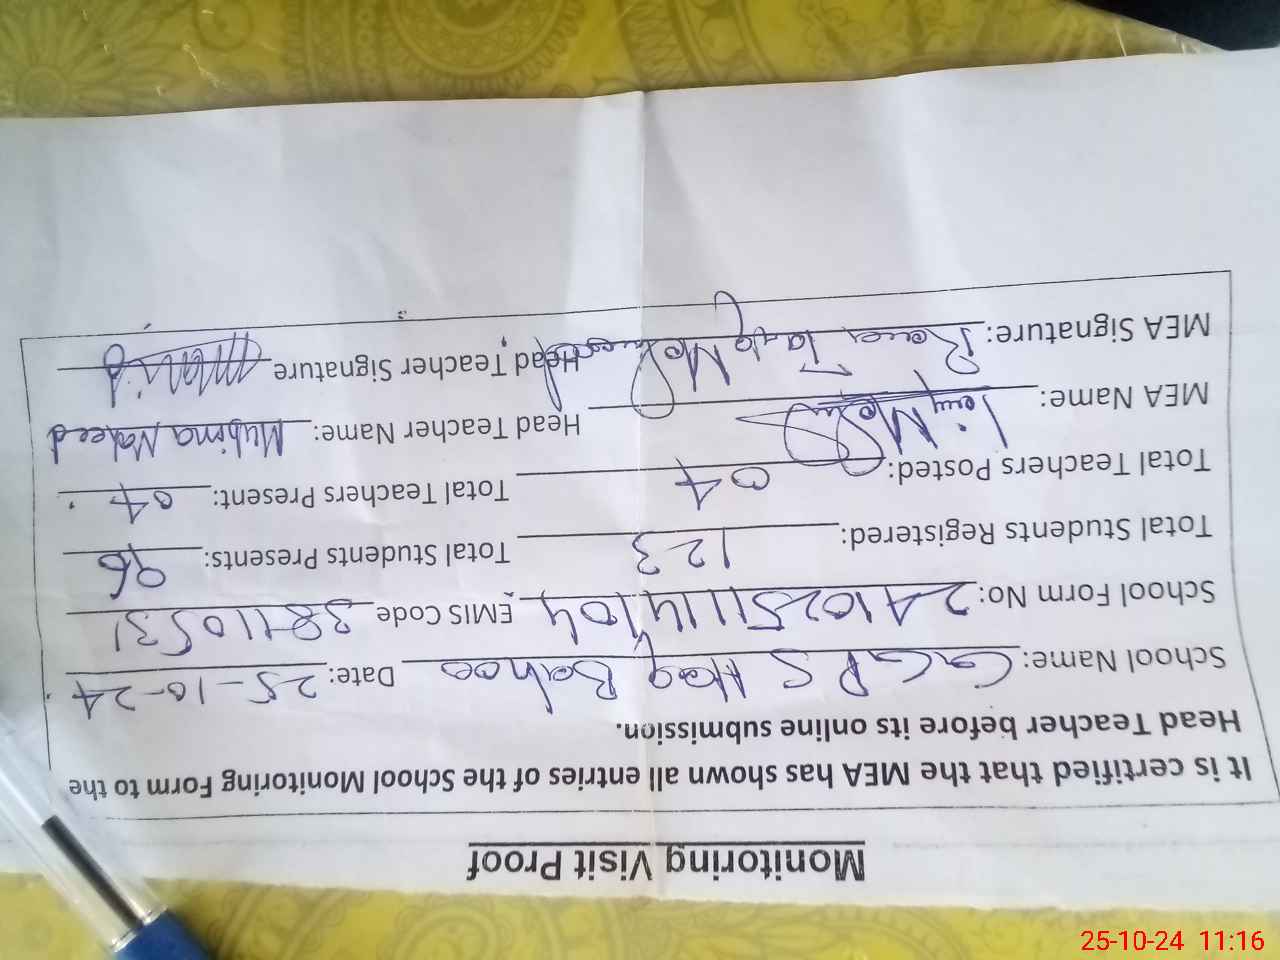 Monitoring Visit Proof
It is certified that the MEA has shown all entries of the School Monitoring Form to the
Head Teacher before its online submission.
School Name: GGPS Haq Bahoo Date: 25-10-24
School Form No: EMIS Code 38110531
Total Students Registered: 123 Total Students Presents: 96
Total Teachers Posted: 04 Total Teachers Present: 04
MEA Name: Head Teacher Name: Mubina Naheed
MEA Signature: Head Teacher Signature
25-10-24 11:16